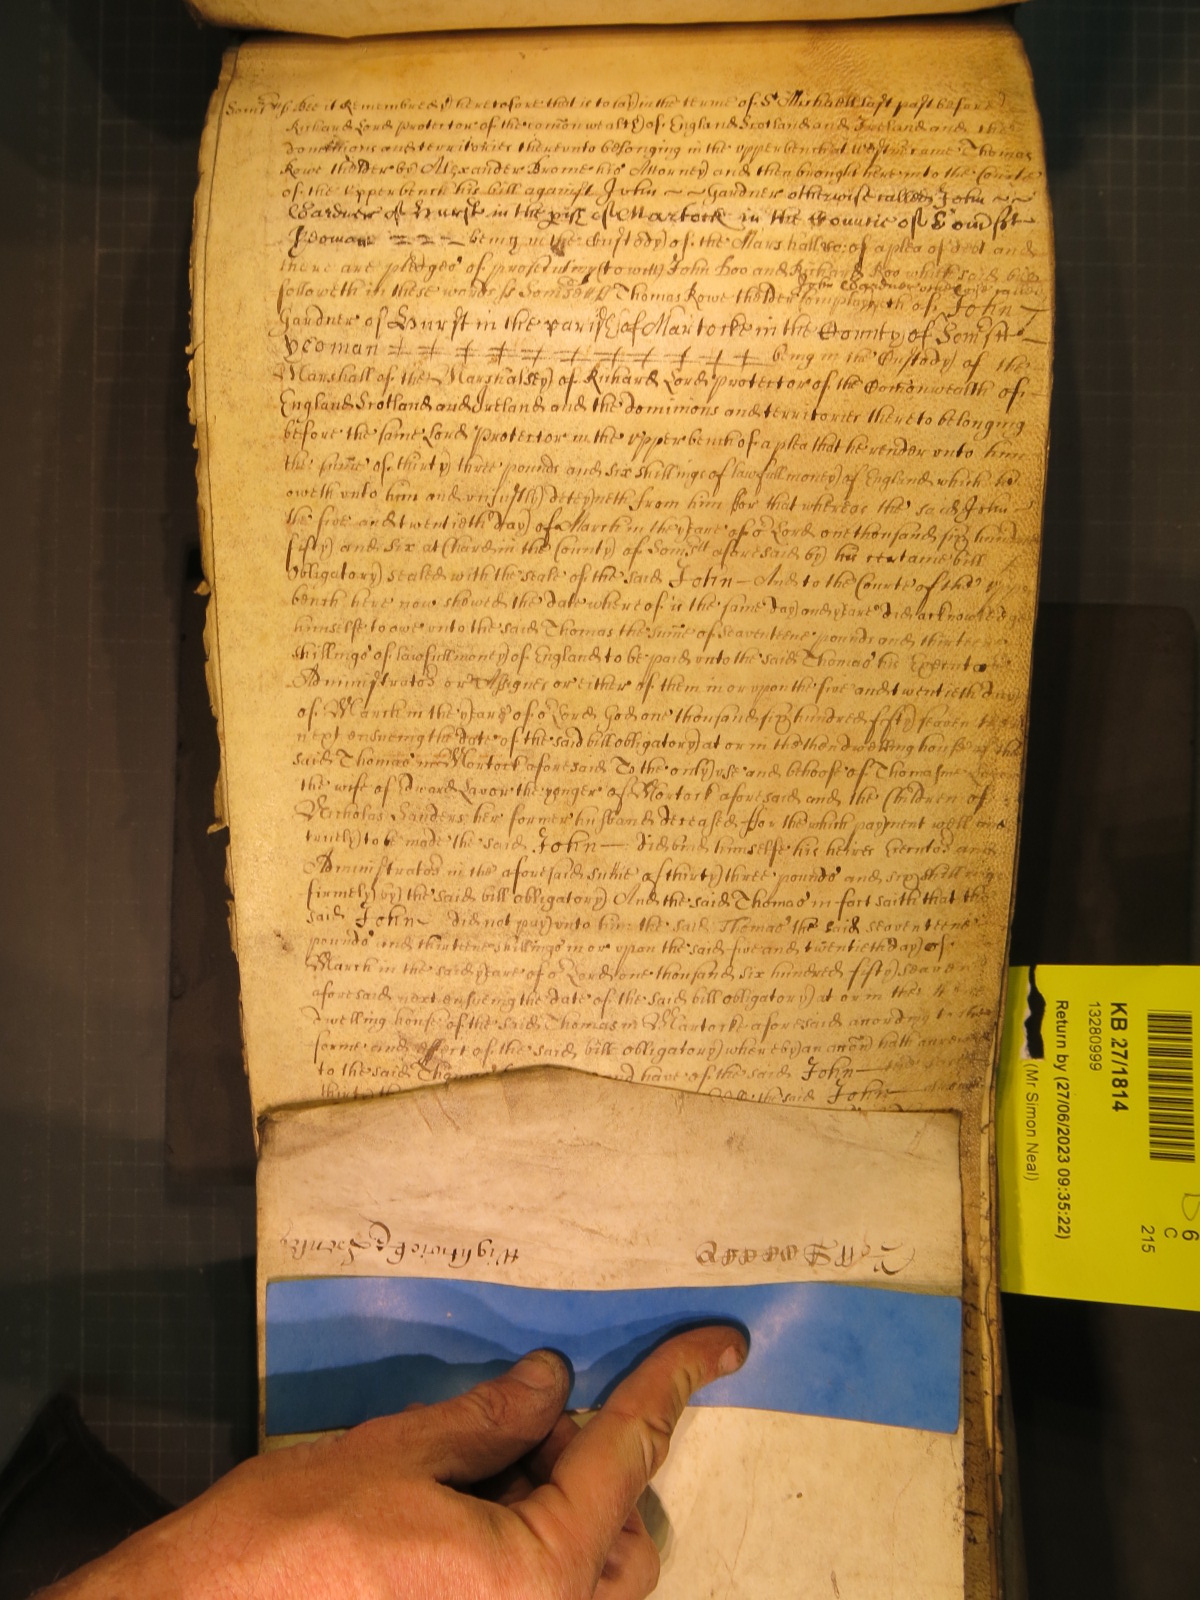 Som'st ss Bee it Remembred heretofore that is to say in the terme of St Michaell last past before
Richard Lord protector of the comonwealth of England Scotland and Ireland and the
dominions and territories therevnto belonging in the vpper bench at Westm came Thomas
Rowe thelder by Alexander Brome his Attorney and then brought here into the Courte
of the vpper bench his bill against John ~ ~ Gardner otherwise called John ~ ~
Gardner of Hurst in the pish of Martock in the Countie of Som'st
Yeoman being in the Custody of the Marshall &c of a plea of debt and
there are pledges of prosecuting (to witt) John Doo and Richard Roo which said bill
followeth in these words ss Som'st ss Thomas Rowe thelder complayneth of John
John Gardner otherwise called
Gardner of Hurst in the parish of Martocke in the County of Som'st
yeoman being in the Custody of the
Marshall of the Marshalsey of Richard Lord protector of the Comonwealth of
England Scotland and Ireland and the dominions and territories thereto belonging
before the same Lord Protector in the vpper bench of a plea that he render vnto him
the sume of thirty three pounds and six shillings of lawfull money of England which he
oweth vnto him and vniustly deteyneth from him For that whereas the said John
the five and twentieth day of March in the yeare of or Lord one thousand six hundred
fifty and six at Chard in the County of Som'st aforesaid by his certaine bill
obligatory sealed with the seale of the said John And to the Courte of the vpper
bench here now shewed the date whereof is the same day and yeare did acknowledge
himselfe to owe vnto the said Thomas the sume of seaventeene pounds and thirteene
shillings of lawfull money of England to be paid vnto the said Thomas his Executors
Administrators or Assignes or either of them in or vpon the five and twentieth day
of March in the yeare of or Lord God one thousand six hundred fifty seaven
next ensueing the date of the said bill obligatory at or in the then dwelling house of the
said Thomas in Martock aforesaid To the only vse and behoofe of Thomasine
the wife of Edward Lavor the yonger of Martock aforesaid and the Children of
Nicholas Sanders her former husband deceased For the which payment well and
truely to be made the said John did bind himselfe his heires Executors and
Administrators in the aforesaid sume of thirty three pounds and six shillings
firmely by the said bill obligatory And the said Thomas in fact saith that the
said John did not pay vnto him the said Thomas the said seaventeene
pounds and thirteene shillings in or vpon the said five and twentieth day of
March in the said yeare of or Lord one thousand six hundred fifty seaven
aforesaid next ensueing the date of the said bill obligatory at or in the then
dwelling house of the said Thomas in Martocke aforesaid according to the
forme and effect of the said bill obligatory whereby an accon hath accrued
to the said have of the said John
the said John
Wightwick &
KB 27/1814
13280999
Return by (27/06/2023 09:35:22)
(Mr Simon Neal)
D 6
C
215